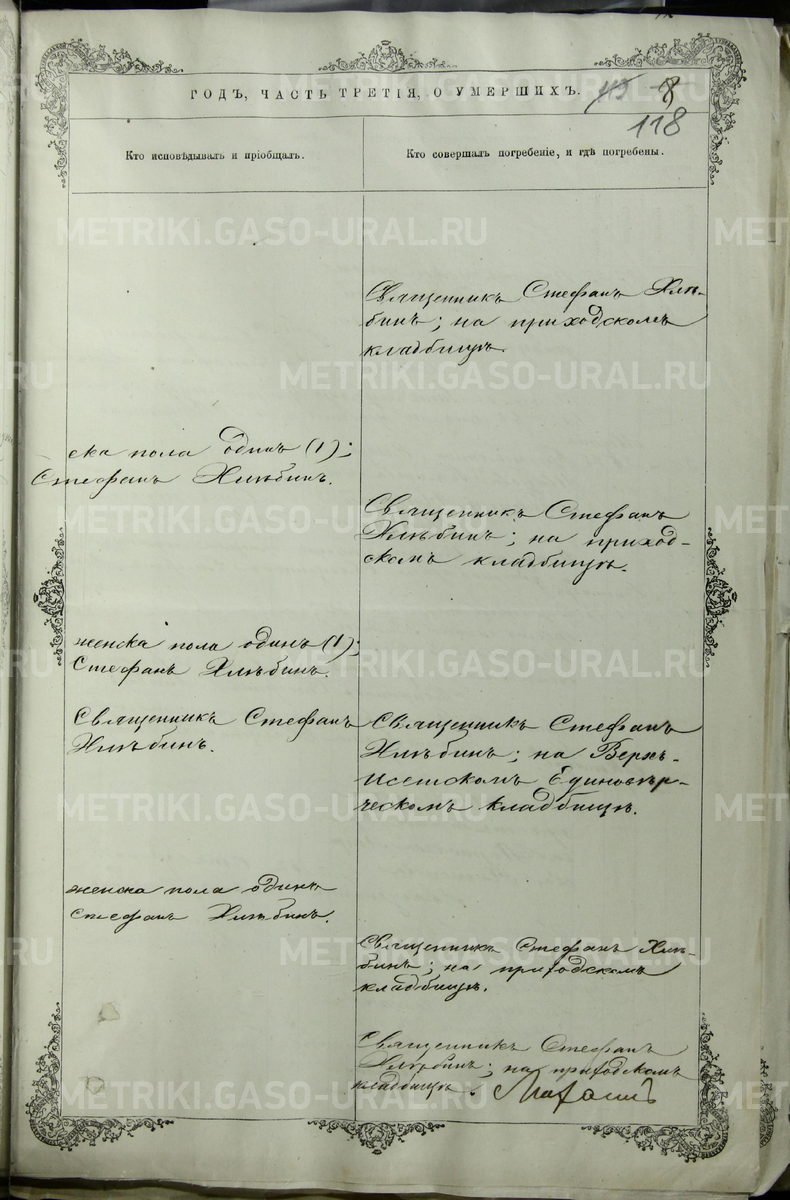 ГОДЪ, ЧАСТЬ ТРЕТІЯ, О УМЕРШИХЪ.
118
Кто исповѣдывалъ и пріобщалъ.
Кто совершалъ погребеніе, и гдѣ погребены.
Священникъ Стефанъ Хлѣ-
бинъ; на приходскомъ
кладбищѣ
ска пола одинъ (1);
Стефанъ Хлѣбинъ.
Священникъ Стефанъ
Хлѣбинъ; на приход-
скомъ кладбищѣ.
женска пола одинъ (1);
Стефанъ Хлѣбинъ.
Священникъ Стефанъ
Хлѣбинъ.
Священникъ Стефанъ
Хлѣбинъ; на Верхъ-
Исетскомъ Единовѣр-
ческомъ кладбищѣ.
женска пола одинъ
Стефанъ Хлѣбинъ.
Священникъ Стефанъ Хлѣ-
бинъ; на приходскомъ
кладбищѣ.
Священникъ Стефанъ
Хлѣбинъ; на приходскомъ
кладбищѣ.
METRIKI.GASO-URAL.RU